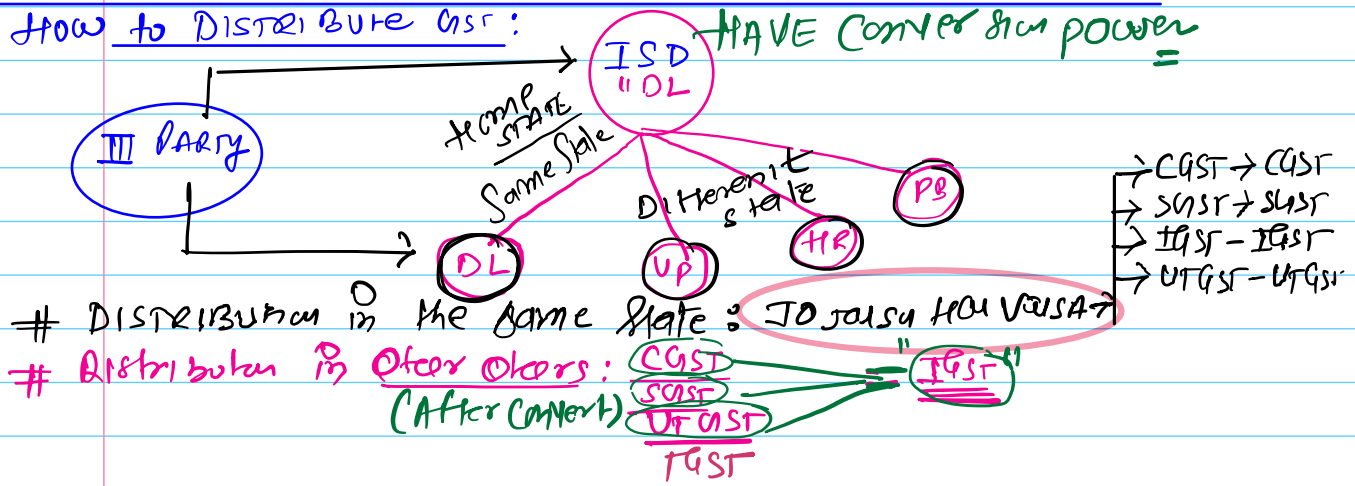 How to DISTRIBUTE GST:
HAVE Conversion power
ISD
"DL
III PARTY
HOME STATE
Same State
Different state
DL
UP
HR
PB
CGST → CGST
SGST → SGST
IGST - IGST
UTGST - UTGST
# DISTRIBUTION in the same State : JO JAISA HAI VAISA
# Distribution in Other Others :
(After Convert)
CGST
SGST
UTGST
IGST
"IGST"